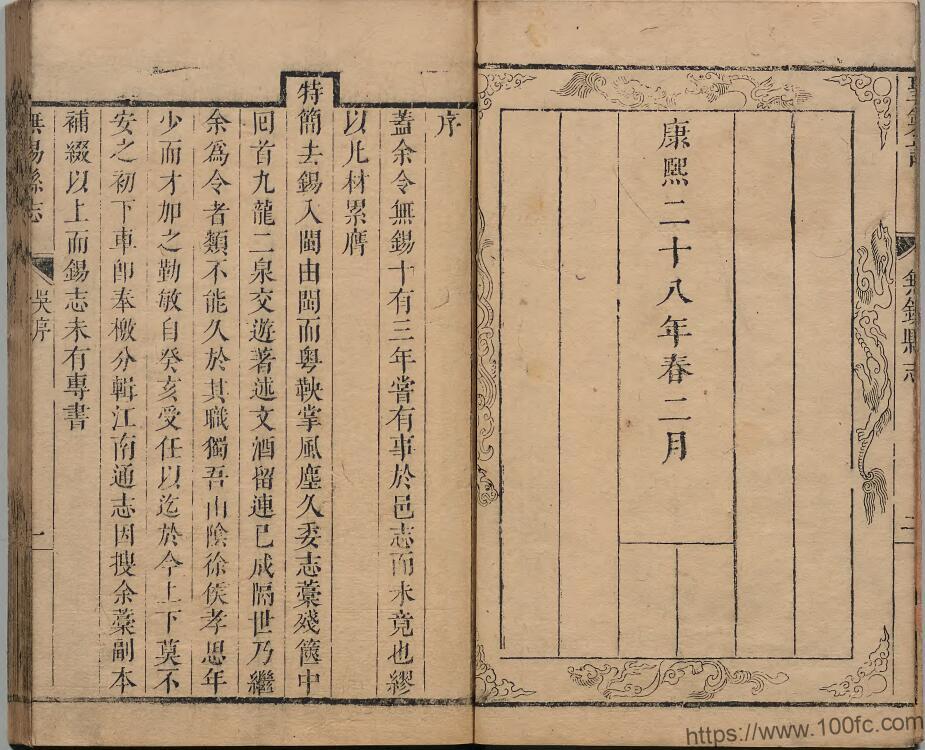 無錫縣志
二
康熙二十八年春二月
序
蓋余令無錫十有三年嘗有事於邑志而未竟也繆
以凡材累膺
特
簡去錫入閩由閩而粤鞅掌風塵久委志藁殘篋中
囘首九龍二泉交遊著述文酒留連已成隔世乃繼
余爲令者類不能久於其職獨吾山陰徐侯孝思年
少而才加之勤敏自癸亥受任以迄於今上下莫不
安之初下車卽奉檄分輯江南通志因搜余藁副本
補綴以上而錫志未有專書
無錫縣志
吳序
一
https://www.100fc.com